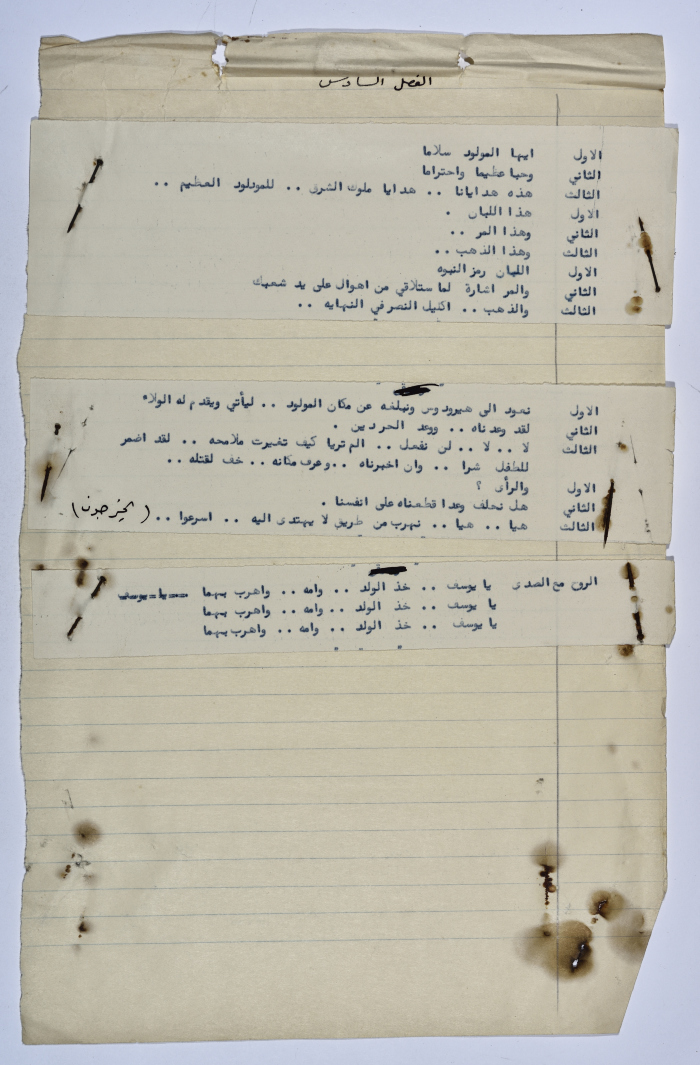 الفصل السادس
الاول ايها المولود سلاما
الثاني وحبا عظيما واحتراما
الثالث هذه هدايانا .. هدايا ملوك الشرق .. للمودلود العظيم ..
الاول هذا اللبان .
الثاني وهذا المر ..
الثالث وهذا الذهب ..
الاول اللبان رمز النبوه
الثاني والمر اشارة لما ستلاقي من اهوال على يد شعبك
الثالث والذهب .. اكليل النصر في النهايه ..
الاول نعود الى هيرودوس ونبلغه عن مكان المولود .. ليأتي ويقدم له الولاء
الثاني لقد وعدناه .. ووعد الحر دين .
الثالث لا .. لا .. لن نفعل .. الم تريا كيف تغيرت ملامحه .. لقد اضمر
للطفل شرا .. وان اخبرناه .. وعرف مكانه .. خف لقتله ..
الاول والرأى ؟
الثاني هل نخلف وعدا قطعناه على انفسنا .
الثالث هيا .. هيا .. نهرب من طريق لا يهتدى اليه .. اسرعوا .. ( يخرجون )
الرؤ مع الصدى يا يوسف .. خذ الولد .. وامه .. واهرب بهما يا يوسف
يا يوسف .. خذ الولد .. وامه .. واهرب بهما
يا يوسف .. خذ الولد .. وامه .. واهرب بهما